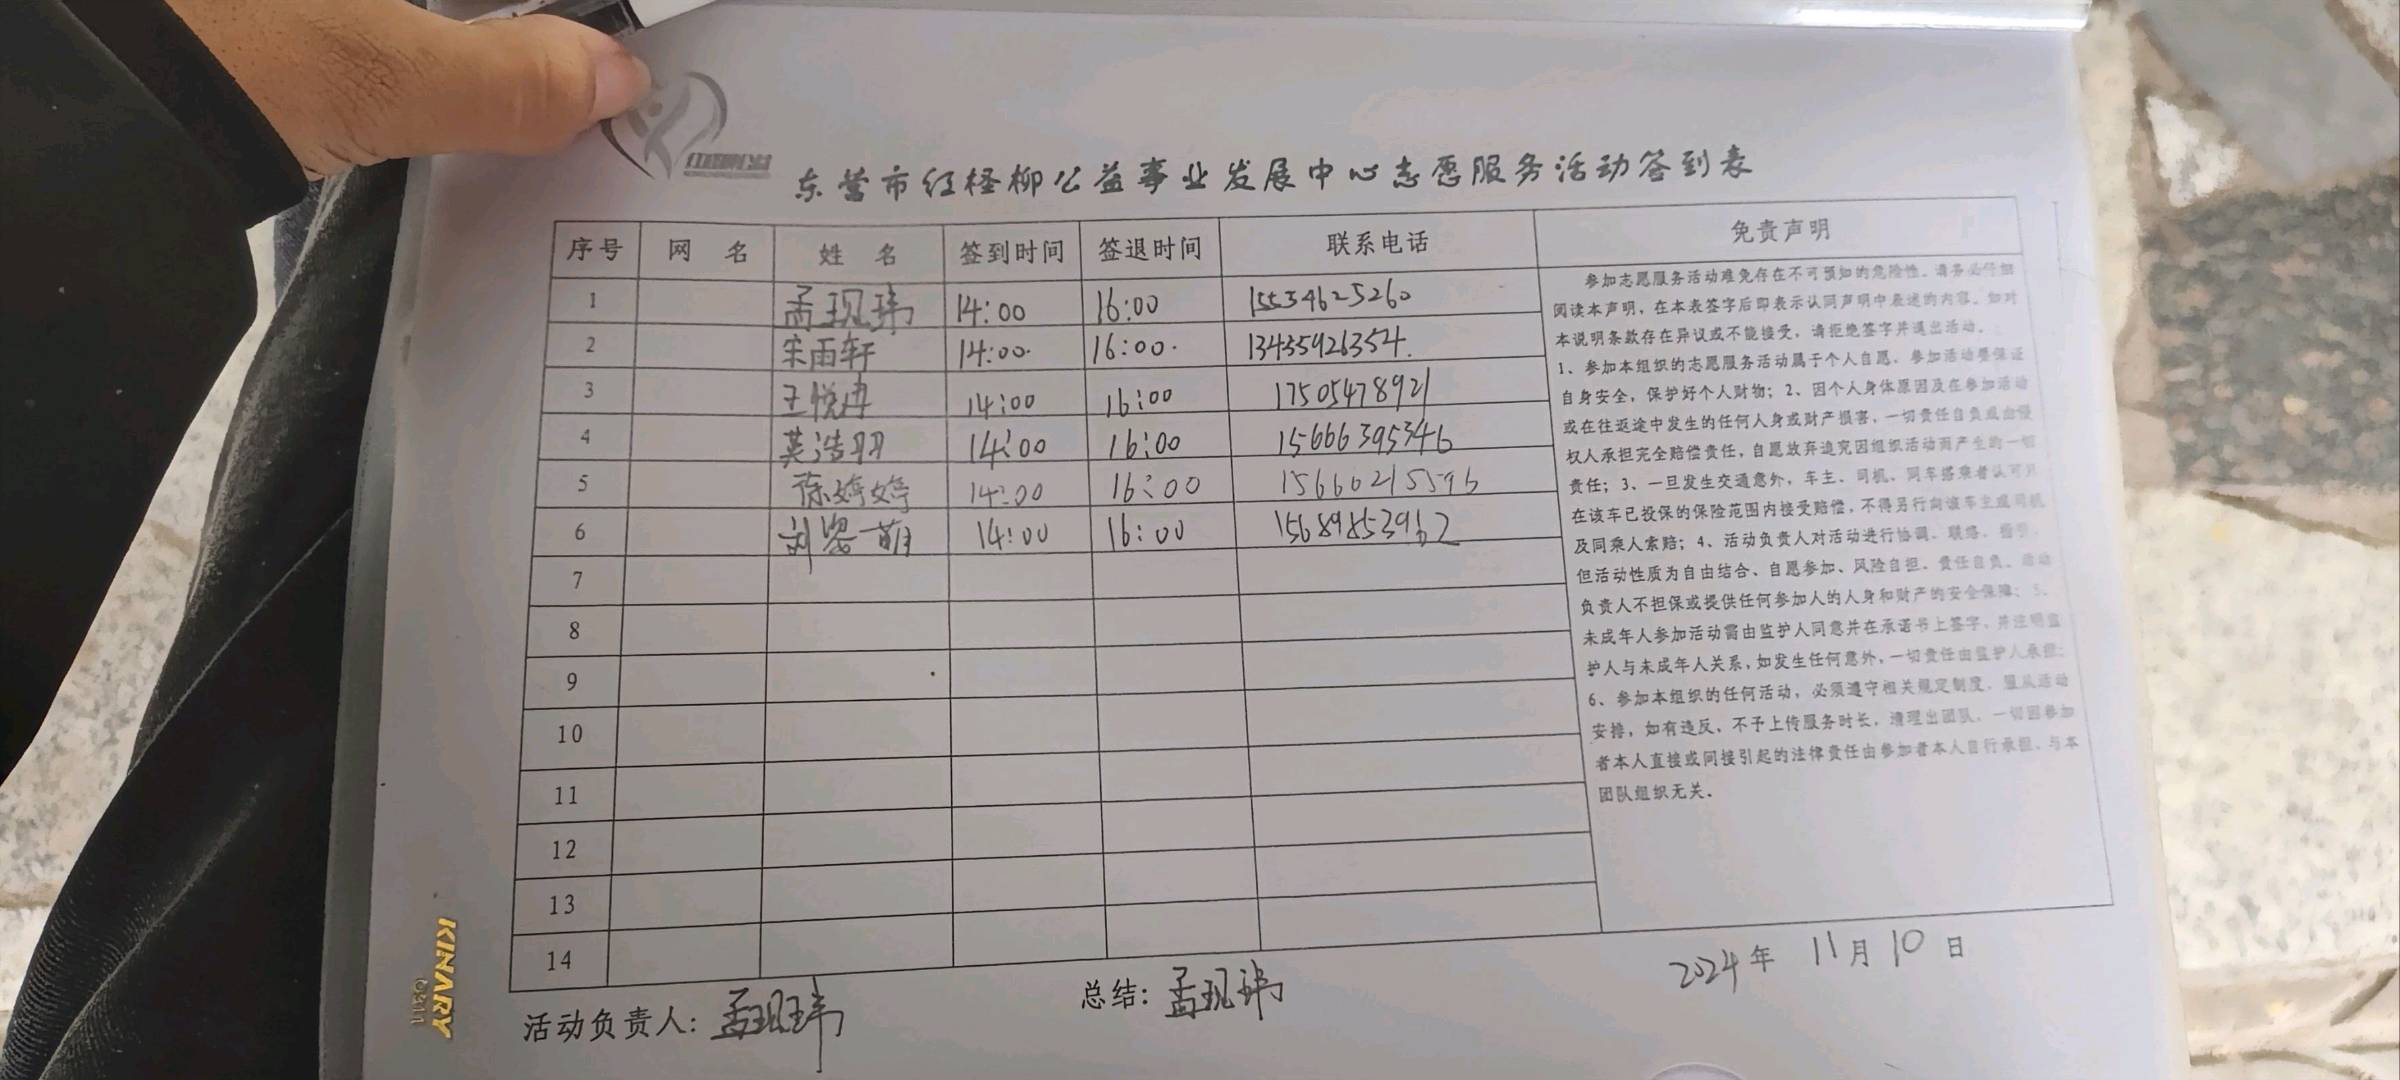 红柽柳公益
东营市红柽柳公益事业发展中心志愿服务活动签到表
序号 网 名 姓 名 签到时间 签退时间 联系电话 免责声明
1 孟现玮 14:00 16:00 15534625260
2 宋雨轩 14:00. 16:00. 13435926354.
3 王悦冉 14:00 16:00 17505478921
4 英浩羽 14:00 16:00 15666395346
5 徐婷婷 14:00 16:00 15660215596
6 刘 一萌 14:00 16:00 15689853962
7
8
9
10
11
12
13
14
参加志愿服务活动难免存在不可预知的危险性。请务必仔细
阅读本声明，在本表签字后即表示认同声明中表述的内容。如对
本说明条款存在异议或不能接受，请拒绝签字并退出活动。
1、参加本组织的志愿服务活动属于个人自愿，参加活动要保证
自身安全，保护好个人财物；2、因个人身体原因及在参加活动
或在往返途中发生的任何人身或财产损害，一切责任自负或由侵
权人承担完全赔偿责任，自愿放弃追究因组织活动而产生的一切
责任；3、一旦发生交通意外，车主、司机、同车搭乘者认可只
在该车已投保的保险范围内接受赔偿，不得另行向该车主或司机
及同乘人索赔；4、活动负责人对活动进行协调、联络、指引，
但活动性质为自由结合、自愿参加、风险自担、责任自负。活动
负责人不担保或提供任何参加人的人身和财产的安全保障；5、
未成年人参加活动需由监护人同意并在承诺书上签字，并注明监
护人与未成年人关系，如发生任何意外，一切责任由监护人承担；
6、参加本组织的任何活动，必须遵守相关规定制度，服从活动
安排，如有违反，不予上传服务时长，清理出团队。一切因参加
者本人直接或间接引起的法律责任由参加者本人自行承担，与本
团队组织无关。
2024年 11月10日
活动负责人：孟现玮 总结：孟现玮
KINARY
Q311